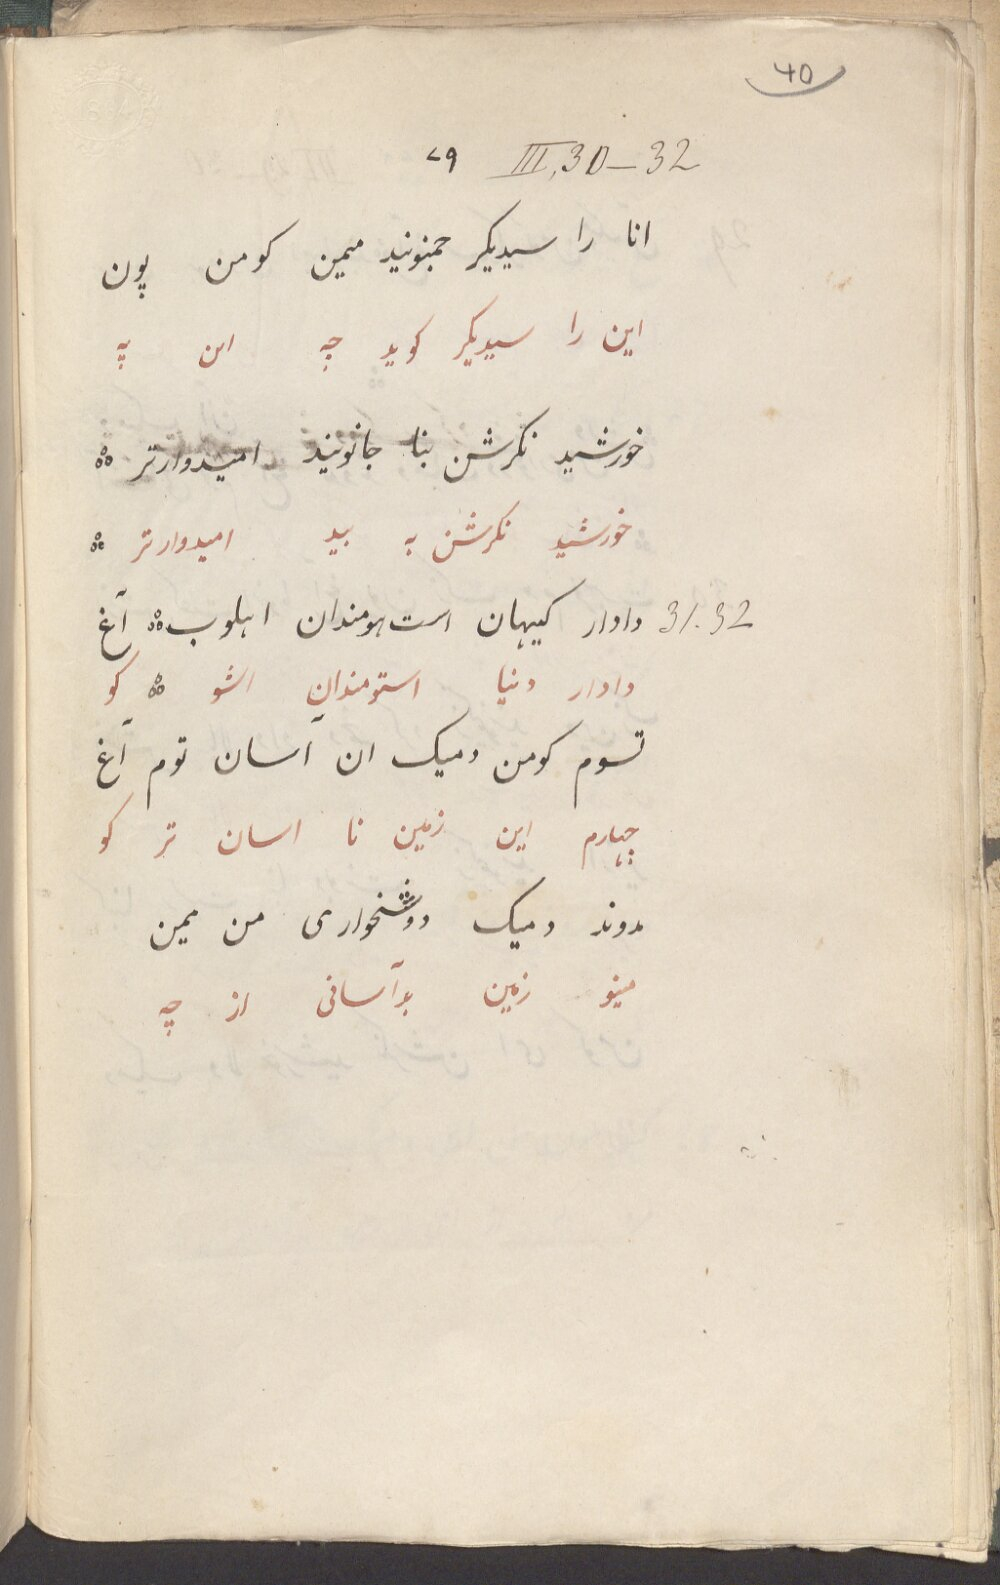 40
۷۹ III, 30-32
انا را سیدیکر جمنونید میمن کو من پون
این را سیدیکر کوید چه این په
خورشید نکرشن بنا جانونید امیدوارتر
خورشید نکرشن به بید امیدوارتر
31.32 دادار کیهان است‌هومندان اهلوب آغ
دادار دنیا استومندان اشو کو
تسوم کو من دمیک ان آسان توم آغ
چهارم این زمین نا اسان تر کو
مدوند دمیک دوشخواری من میمن
مینو زمین بدآسانی از چه